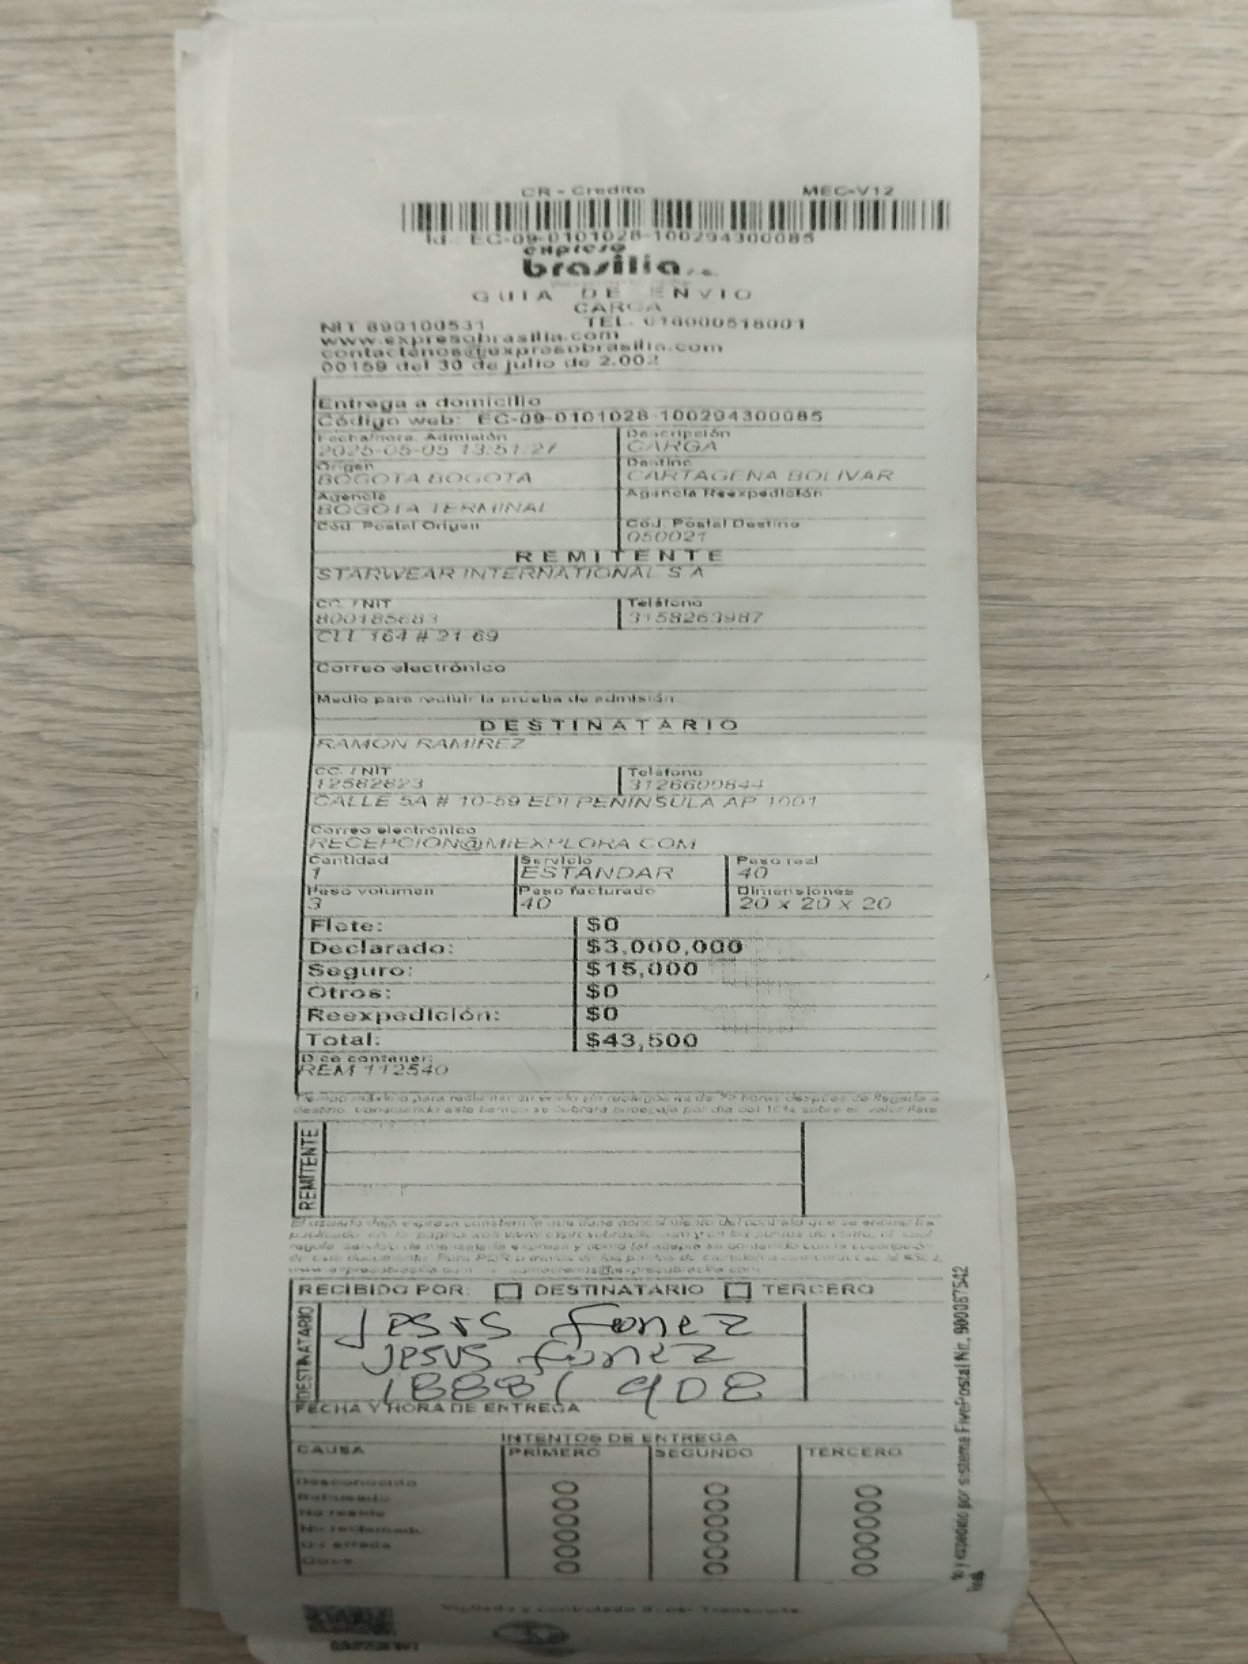 CR - Credito MEC-V12
Id.: EC-09-0101028-100294300085
expreso
brasilia s.a.
GUIA DE ENVIO
CARGA
NIT 890100531 TEL. 018000518001
www.expresobrasilia.com
contactenos@expresobrasilia.com
00159 del 30 de julio de 2.002
Entrega a domicilio
Código web: EC-09-0101028-100294300085
Fecha/hora. Admisión Descripción
2025-05-05 13:51:27 CARGA
Origen Destino
BOGOTA BOGOTA CARTAGENA BOLIVAR
Agencia Agencia Reexpedición
BOGOTA TERMINAL
Cód. Postal Origen Cód. Postal Destino
050021
REMITENTE
STARWEAR INTERNATIONAL S A
CC. / NIT Teléfono
800185683 3158263987
CLL 164 # 21 69
Correo electrónico
Medio para recibir la prueba de admisión
DESTINATARIO
RAMON RAMIREZ
CC. / NIT Teléfono
12562623 3126600844
CALLE 5A # 10-59 EDI PENINSULA AP 1001
Correo electrónico
RECEPCION@MIEXPLORA.COM
Cantidad Servicio Peso real
1 ESTANDAR 40
Peso volumen Peso facturado Dimensiones
3 40 20 x 20 x 20
Flete: $0
Declarado: $3,000,000
Seguro: $15,000
Otros: $0
Reexpedición: $0
Total: $43,500
Dice contener:
REM 112540
REMITENTE
RECIBIDO POR: DESTINATARIO TERCERO
DESTINATARIO
Jesus fonez
Jesus fonez
18881908
FECHA Y HORA DE ENTREGA
INTENTOS DE ENTREGA
CAUSA PRIMERO SEGUNDO TERCERO
Desconocido
Rehusado
No reside
No reclamado
Dir errada
Otros
Vigilado y controlado
por sistema FivePostal Nit. 900087542